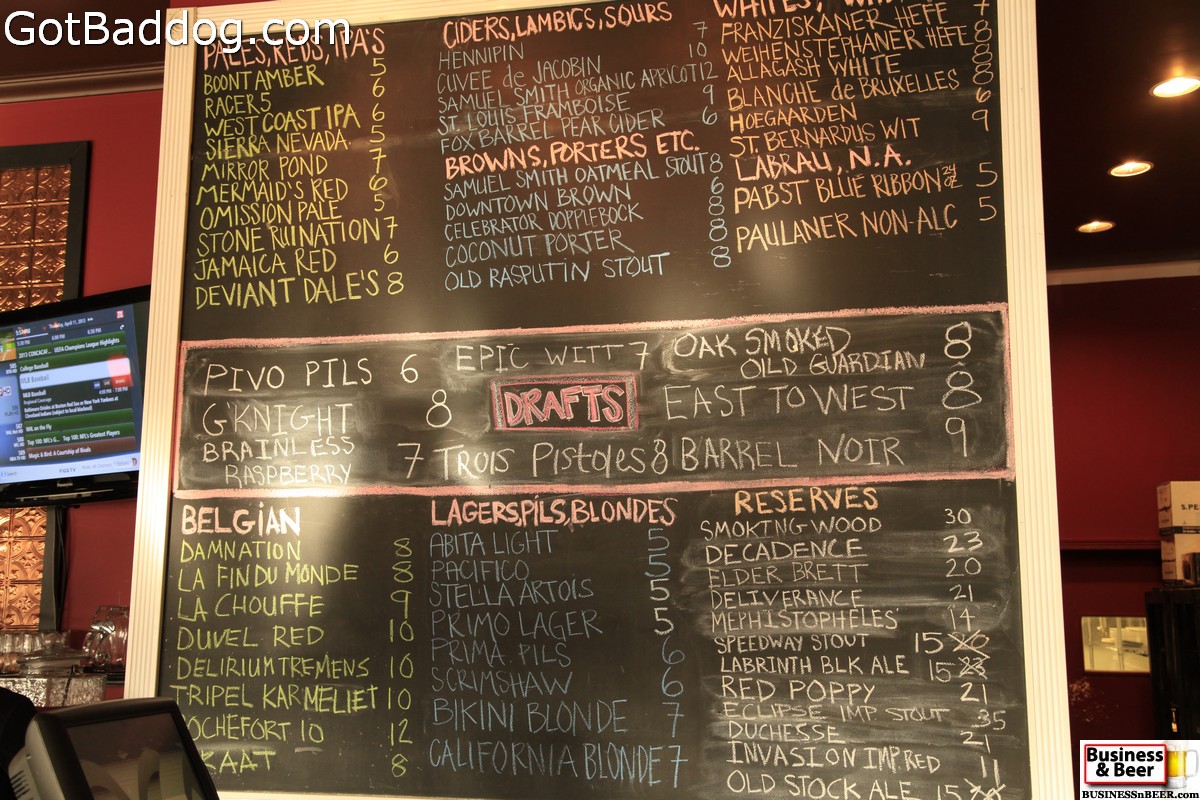 GotBaddog.com
PALES, REDS, IPA'S
BOONT AMBER 5
RACER 5 6
WEST COAST IPA 6
SIERRA NEVADA. 5
MIRROR POND 7
MERMAID'S RED 6
OMISSION PALE 5
STONE RUINATION 7
JAMAICA RED 6
DEVIANT DALE'S 8
CIDERS, LAMBICS, SOURS
HENNIPIN 7
CUVEE de JACOBIN 10
SAMUEL SMITH ORGANIC APRICOT 12
ST. LOUIS FRAMBOISE 9
FOX BARREL PEAR CIDER 6
BROWNS, PORTERS ETC.
SAMUEL SMITH OATMEAL STOUT 8
DOWNTOWN BROWN 6
CELEBRATOR DOPPLEBOCK 8
COCONUT PORTER 8
OLD RASPUTIN STOUT 8
WHITES,
FRANZISKANER HEFE 7
WEIHENSTEPHANER HEFE 8
ALLAGASH WHITE 8
BLANCHE de BRUXELLES 8
HOEGAARDEN 6
ST. BERNARDUS WIT 9
LABRAU, N.A.
PABST BLUE RIBBON 24 OZ 5
PAULANER NON-ALC 5
PIVO PILS 6
G'KNIGHT 8
BRAINLESS
RASPBERRY 7
EPIC WITT 7
DRAFTS
TROIS PISTOLES 8
OAK SMOKED
OLD GUARDIAN 8
EAST TO WEST 8
BARREL NOIR 9
BELGIAN
DAMNATION 8
LA FIN DU MONDE 8
LA CHOUFFE 9
DUVEL RED 10
DELIRIUM TREMENS 10
TRIPEL KARMELIET 10
OCHEFORT 10 12
KAAT 8
LAGERS, PILS, BLONDES
ABITA LIGHT 5
PACIFICO 5
STELLA ARTOIS 5
PRIMO LAGER 5
PRIMA PILS 6
SCRIMSHAW 6
BIKINI BLONDE 7
CALIFORNIA BLONDE 7
RESERVES
SMOKING WOOD 30
DECADENCE 23
ELDER BRETT 20
DELIVERANCE 21
MEPHISTOPHELES' 14
SPEEDWAY STOUT 15 20
LABRINTH BLK ALE 15 23
RED POPPY 21
ECLIPSE IMP STOUT 35
DUCHESSE 21
INVASION IMP. RED 11
OLD STOCK ALE 15
2013 CONCACAF... UEFA Champions League Highlights
College Baseball
MLB Baseball
MLB Baseball
MLB on the Fly
Top 100: NFL's G... Top 100: NFL's Greatest Players
Magic & Bird: A Courtship of Rivals
Panasonic
Business
& Beer
BUSINESSnBEER.com